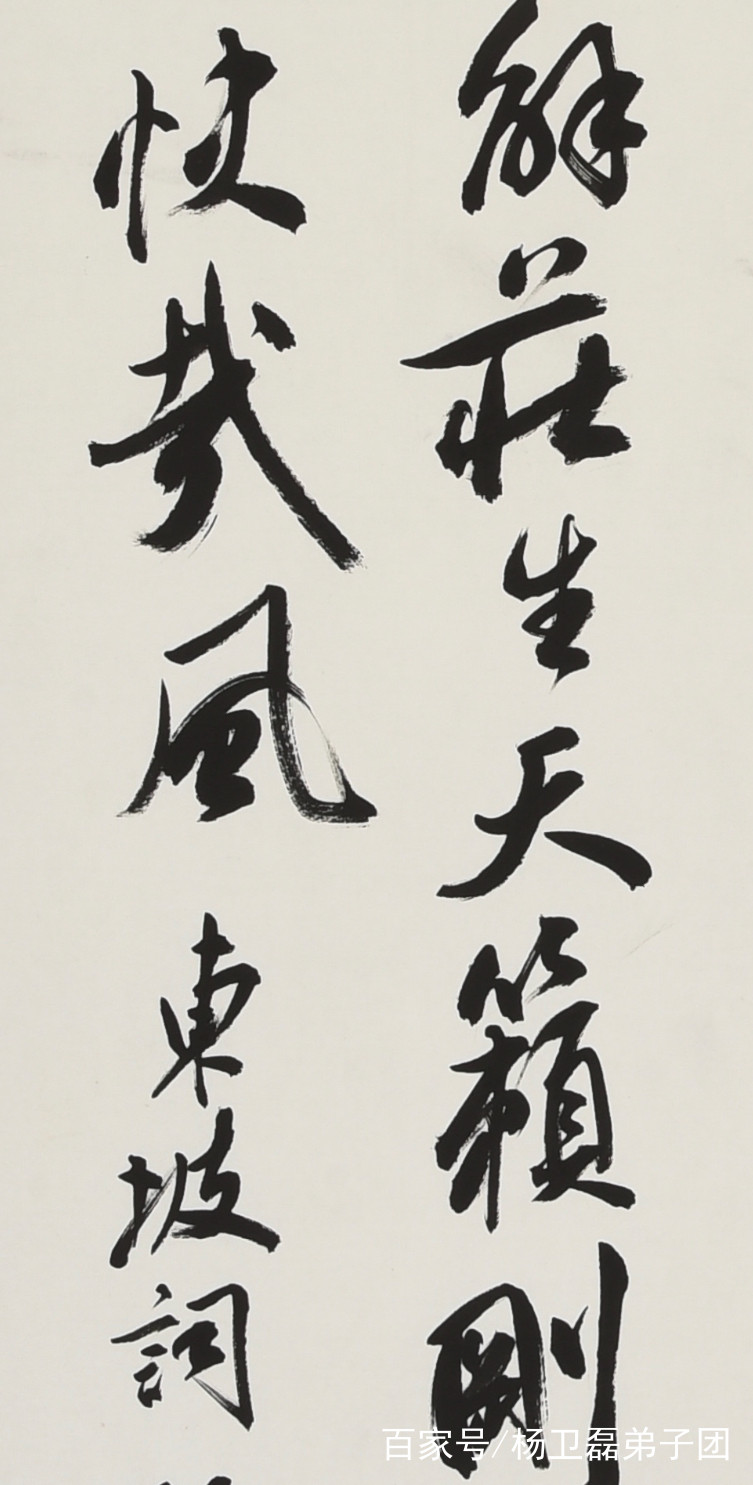 解莊生天籟剛
快哉風 東坡詞
百家号/杨卫磊弟子团